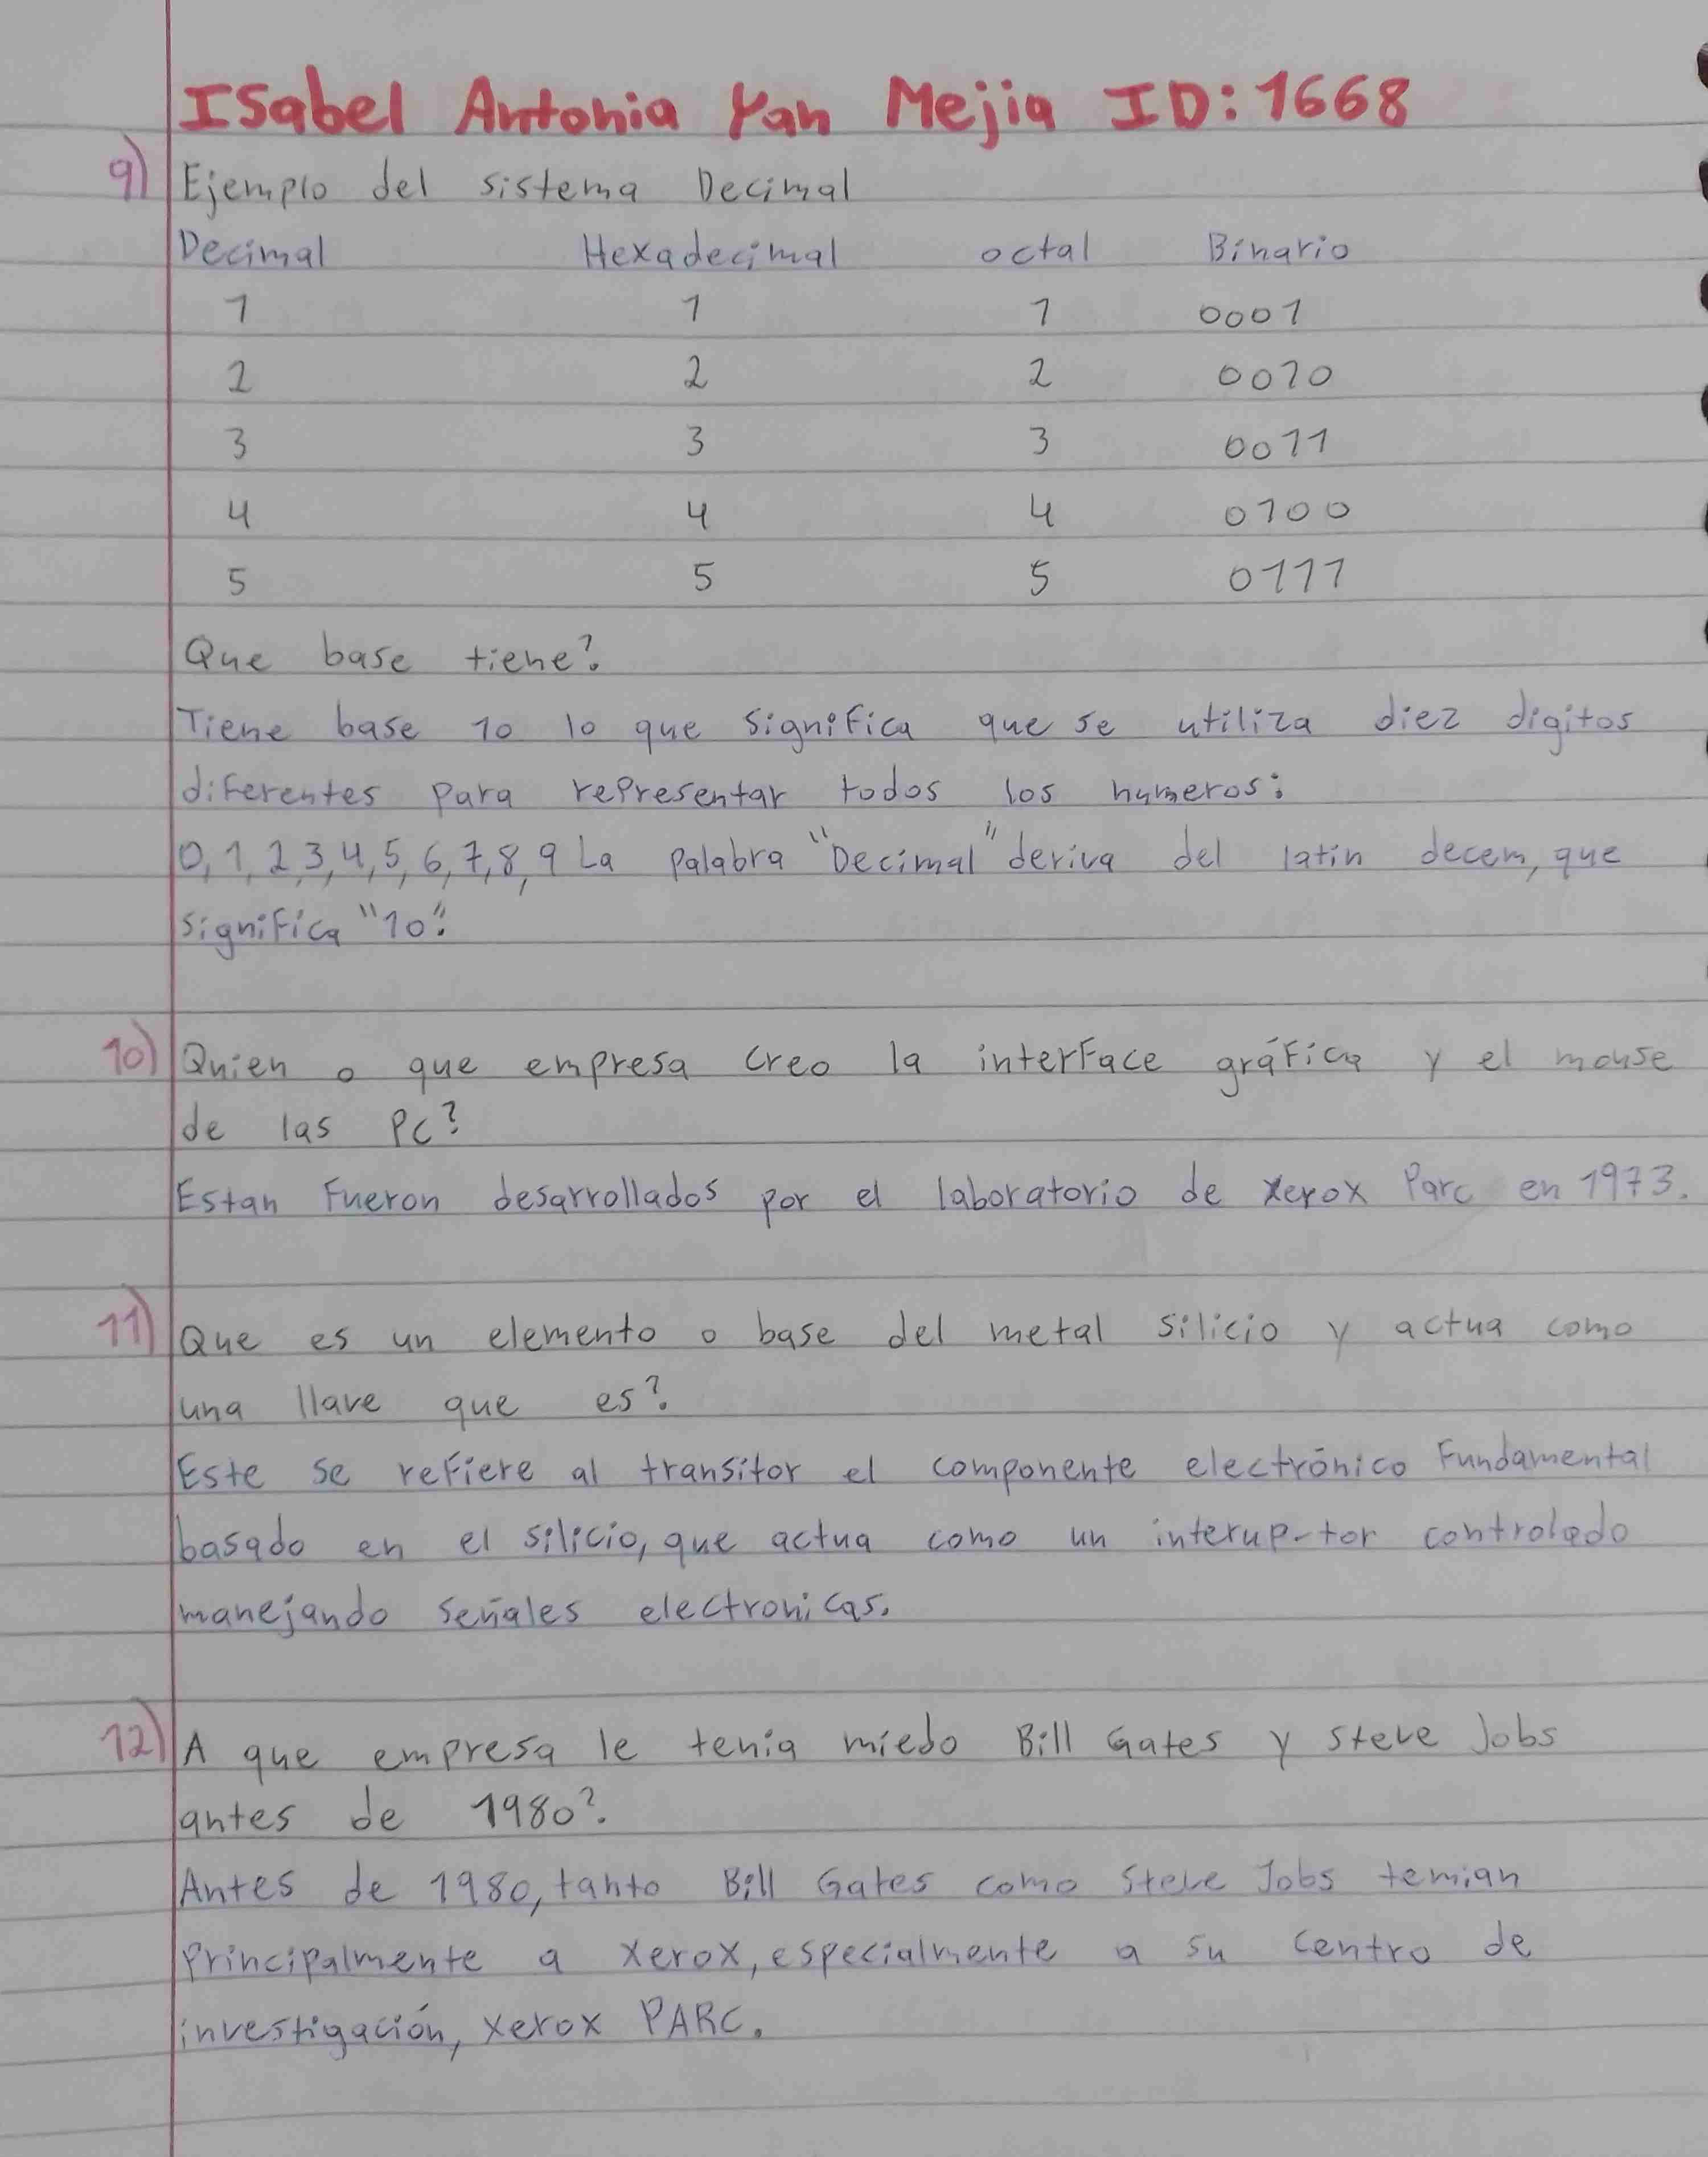 Isabel Antonia Yan Mejia ID: 1668
9) Ejemplo del sistema Decimal
Decimal Hexadecimal octal Binario
1 1 1 0001
2 2 2 0010
3 3 3 0011
4 4 4 0100
5 5 5 0111
Que base tiene?
Tiene base 10 lo que significa que se utiliza diez digitos
diferentes para representar todos los numeros:
0, 1, 2, 3, 4, 5, 6, 7, 8, 9 La palabra "Decimal" deriva del latin decem, que
significa "10".
10) Quien o que empresa creo la interface gráfica y el mouse
de las PC?
Estan Fueron desarrollados por el laboratorio de xerox Parc en 1973.
11) Que es un elemento o base del metal silicio y actua como
una llave que es?
Este se refiere al transitor el componente electrónico Fundamental
basado en el silicio, que actua como un interup-tor controlado
manejando señales electronicas.
12) A que empresa le tenia miedo Bill Gates y Steve Jobs
antes de 1980?
Antes de 1980, tanto Bill Gates como Steve Jobs temian
principalmente a xerox, especialmente a su centro de
investigación, xerox PARC.